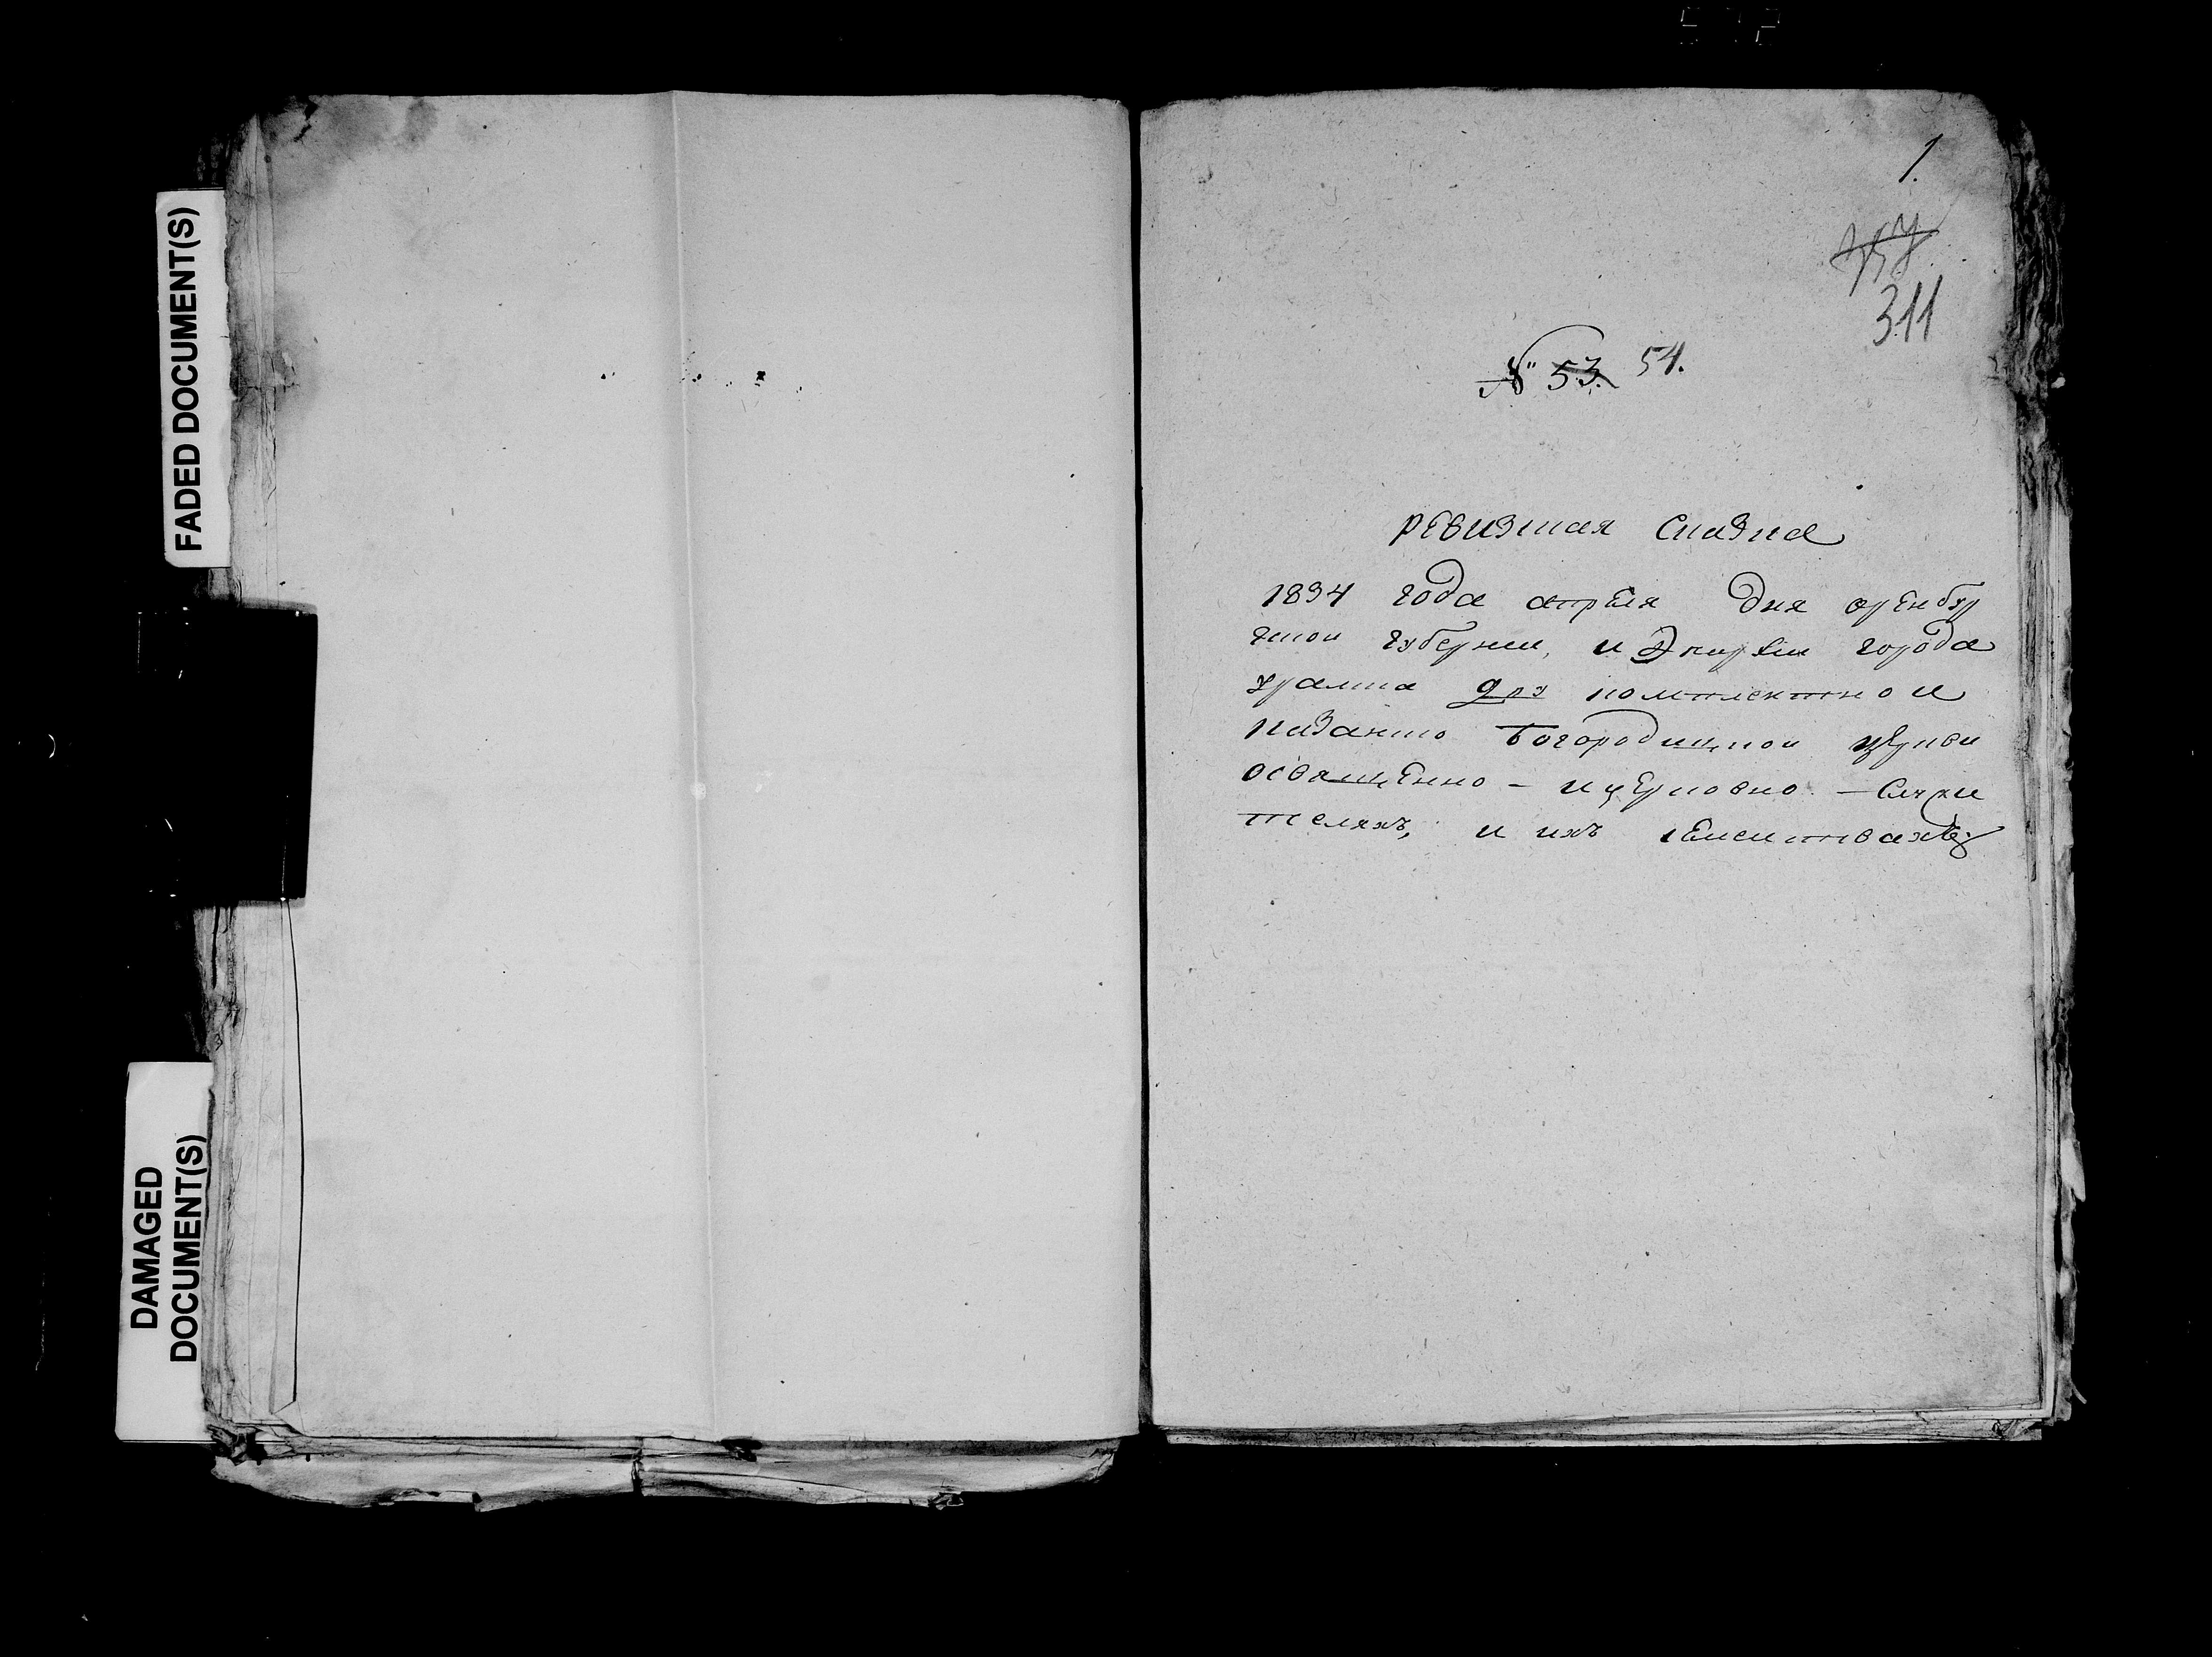 FADED DOCUMENT(S)
DAMAGED
DOCUMENT(S)
1.
311
№ 53. 54.
Ревизская Сказка
1834 года апреля дня оренбур
гской губернии, и Эпархии города
уральска комплектной
Казанско Богородицкой церкви
освященно - и церковно - Служи
теляхъ, и ихъ семействахъ